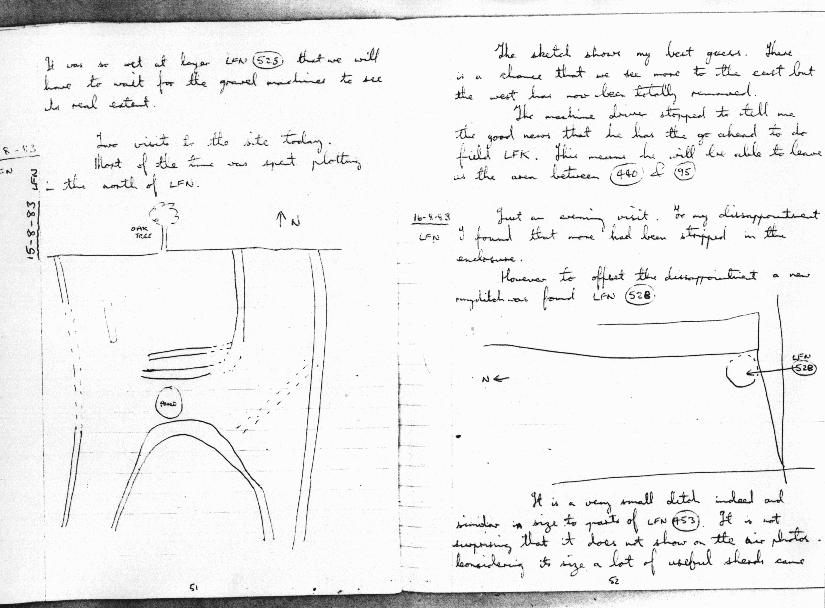 It was so wet at layer LFN 525 that we will
have to wait for the gravel machines to see
its real extent.
8-83
FN
15-8-83 LFN
Two visits to the site today.
Most of the time was spent plotting
in the north of LFN.
OAK
TREE
N
POND
51
The sketch shows my best guess. There
is a chance that we see more to the east but
the west has now been totally removed.
The machine driver stopped to tell me
the good news that he has the go ahead to do
field LFK. This means he will be able to leave
us the area between 440 & 95
16-8-83
LFN
Just an evening visit. To my dissappointment
I found that more had been stripped in the
enclosure.
However to offset the dissappointment a new
ditch was found LFN 528.
N
LFN
528
It is a very small ditch indeed and
similar in size to parts of LFN 453. It is not
surprising that it does not show on the air photos.
Considering its size a lot of useful sherds came
52